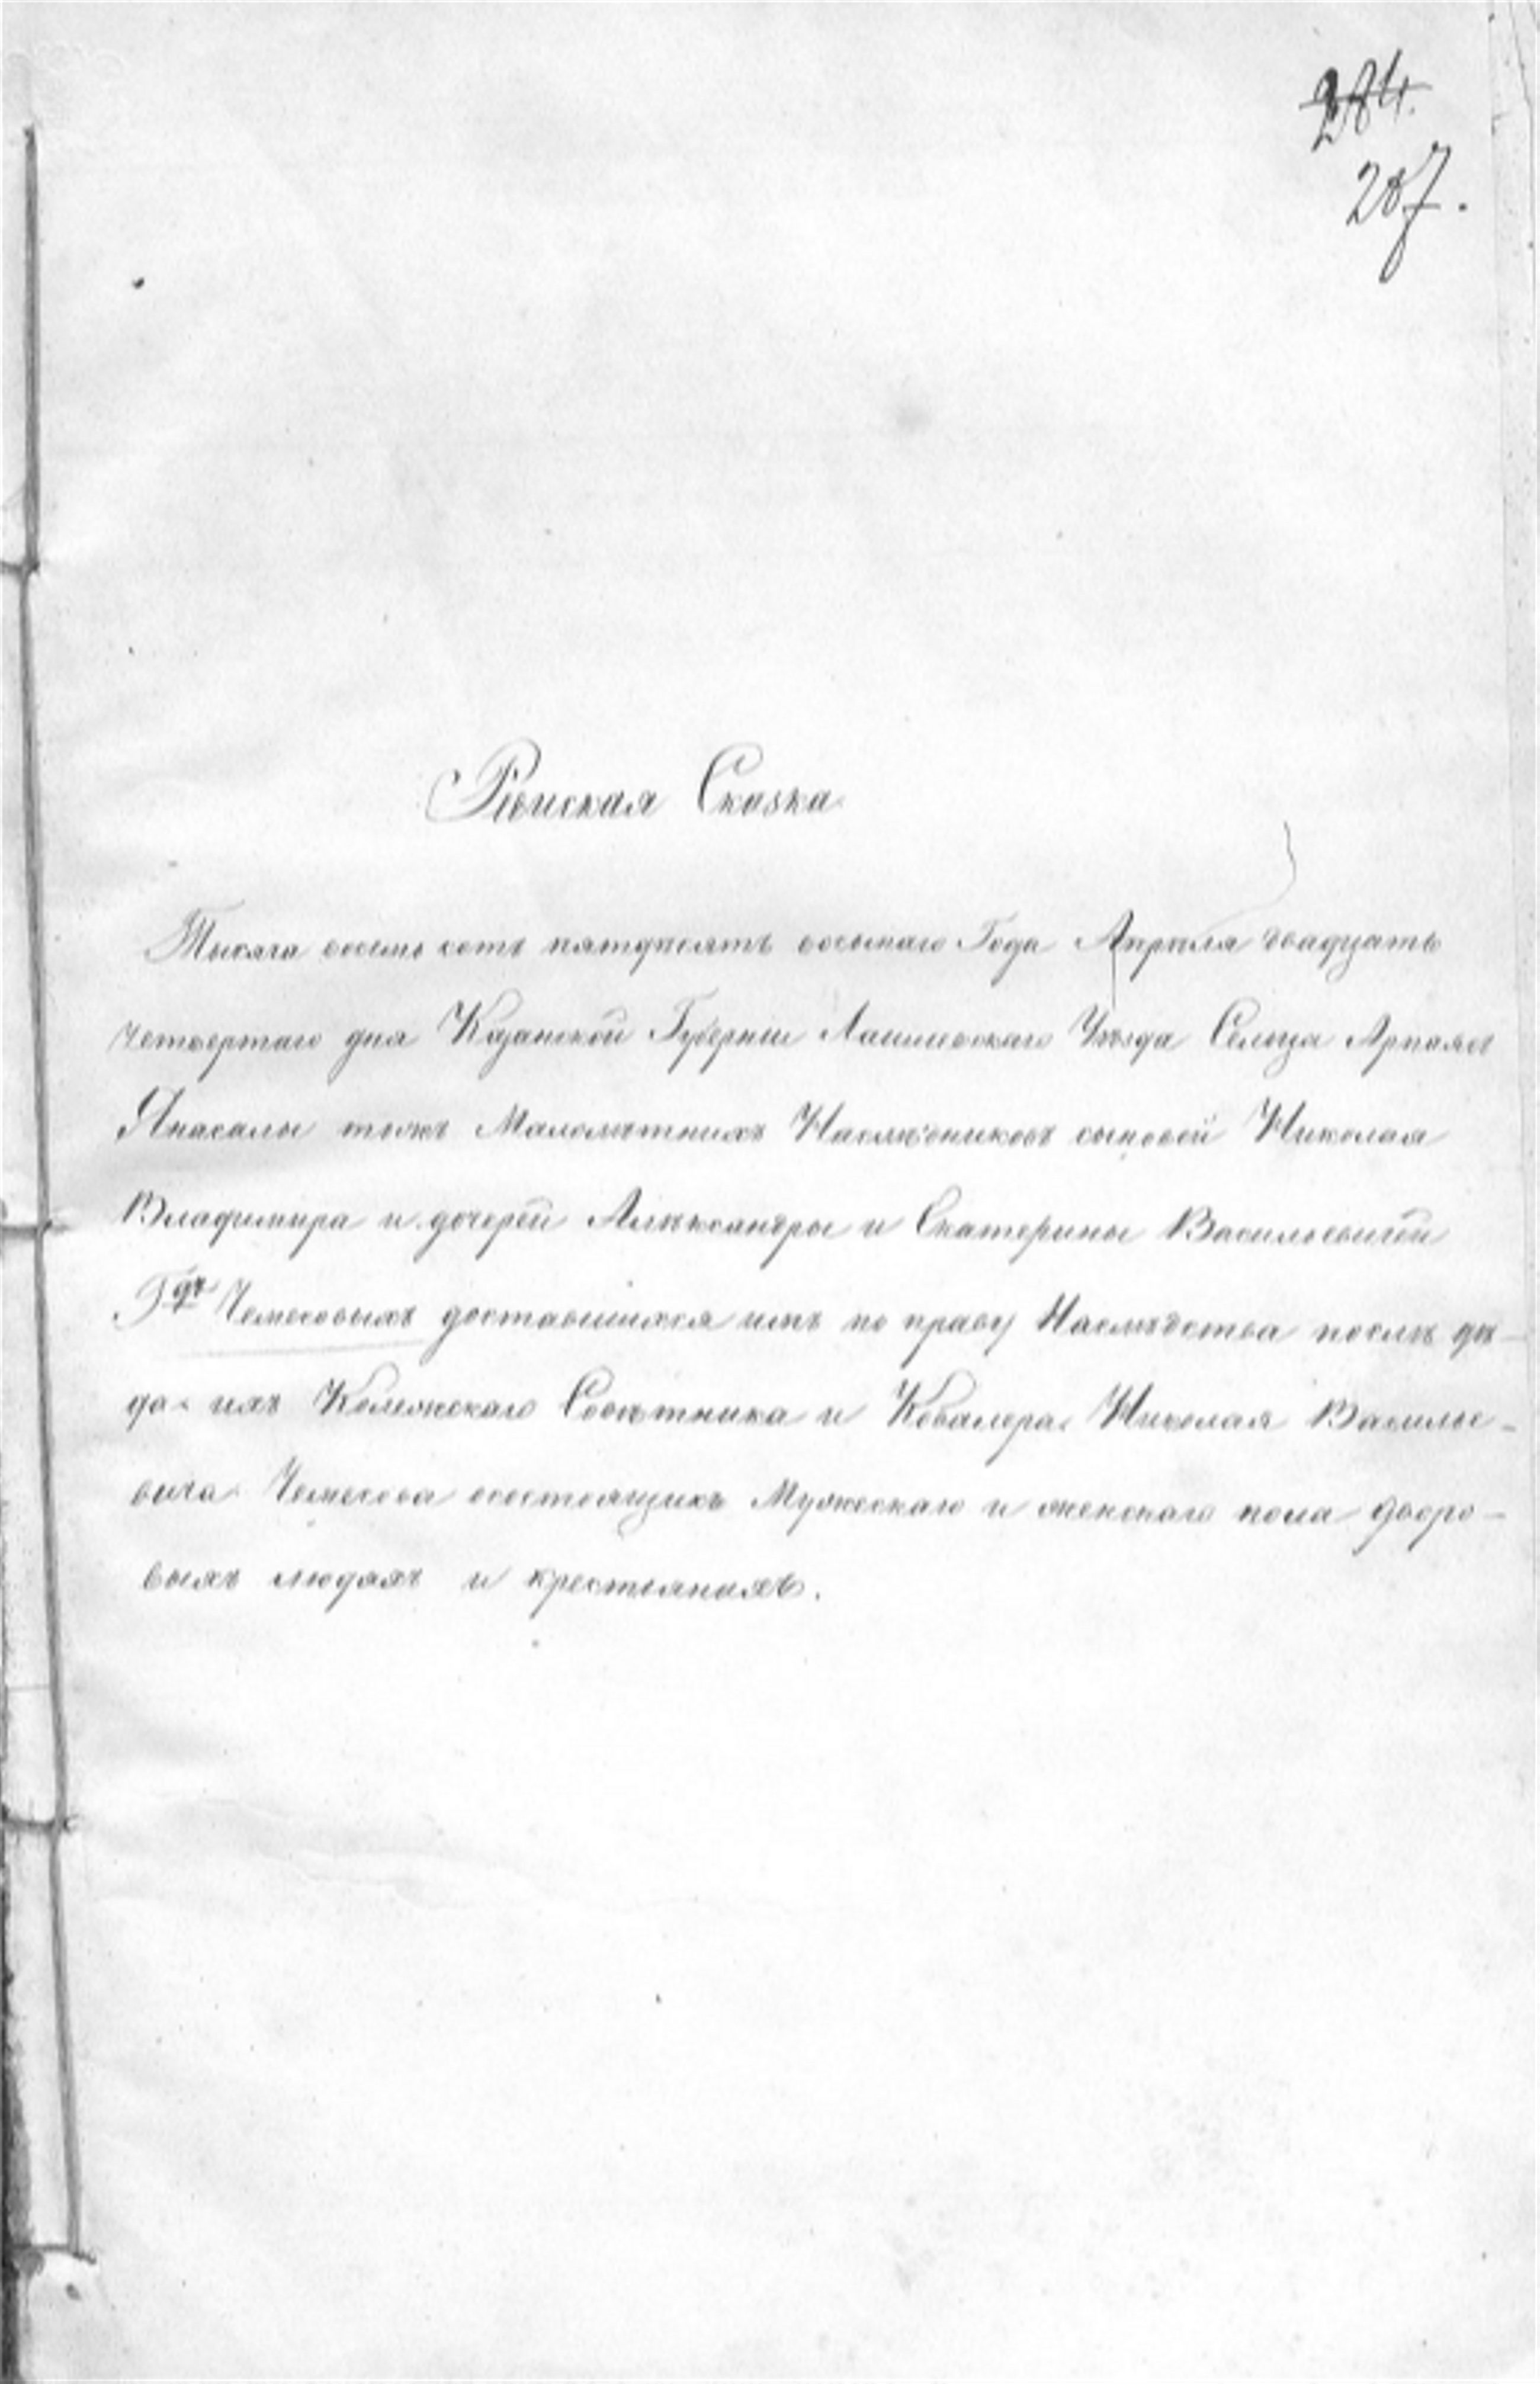 284.
287.
Ревиская Сказка
Тысяча восемь сотъ пятдѣсятъ восьмаго Года Апрѣля двадцать
четвертаго дня Казанской Губерніи Лаишевскаго Уѣзда Сельца
Янасалы тожъ Малолѣтнихъ Наслѣдниковъ сыновей Николая
Владимира и дочерей Алѣксандры и Екатерины Васильевичей
Гдъ Чемесовыхъ доставшихся имъ по праву Наслѣдства послѣ дѣ-
да ихъ Колежскаго Совѣтника и Кавалера Николая Василье-
вича Чемесова осостоящихъ Мужескаго и женскаго пола дворо-
выхъ людяхъ и крестьянахъ.